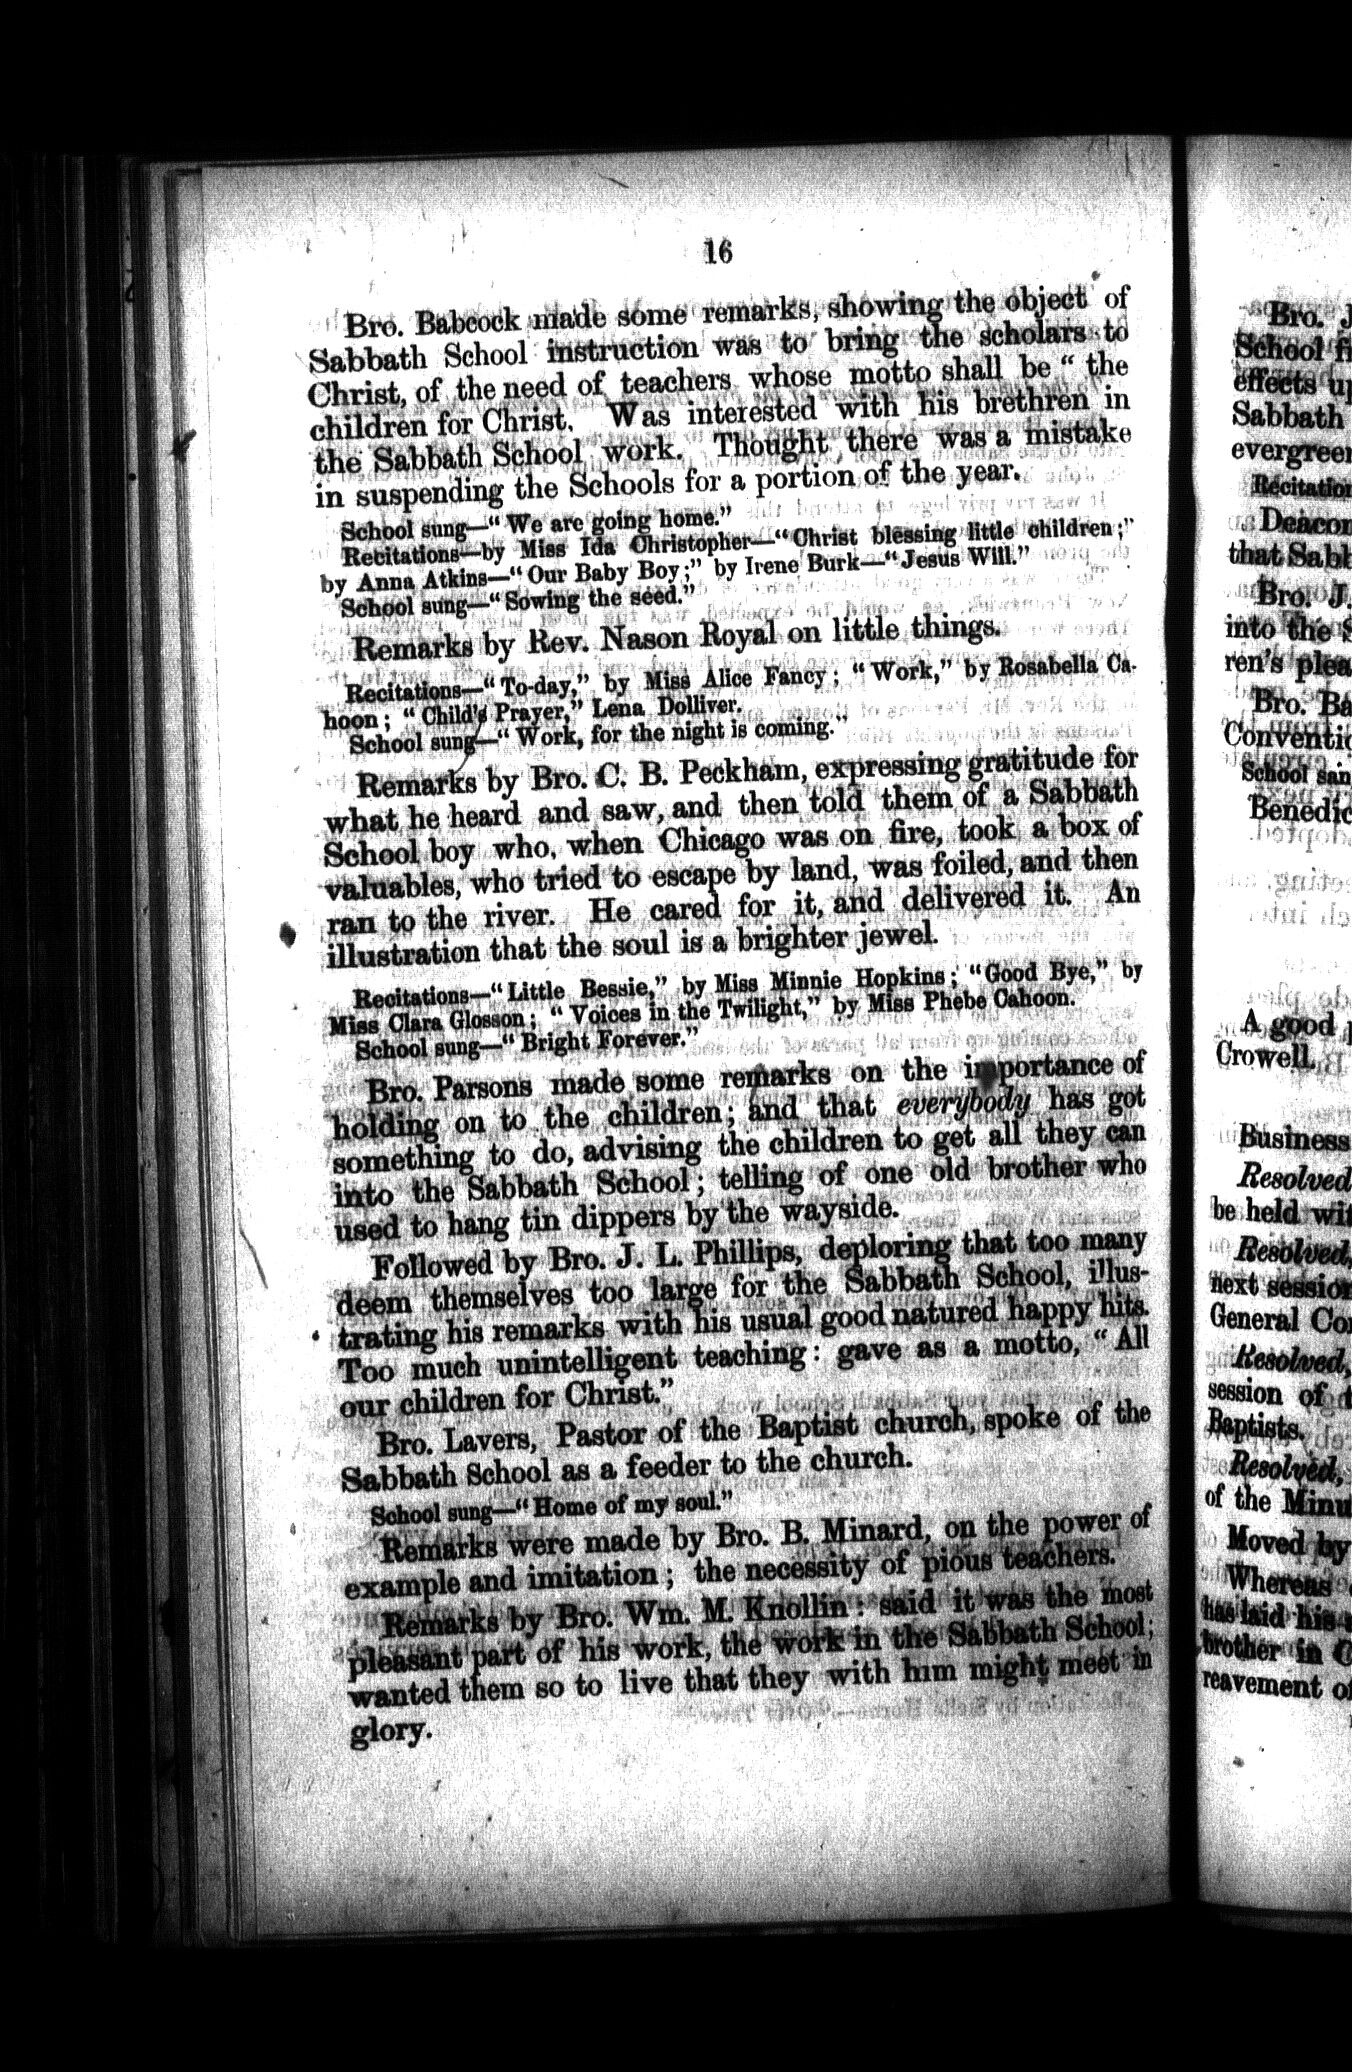 16
Bro. Babcock made some remarks, showing the object of
Sabbath School instruction was to bring the scholars to
Christ, of the need of teachers whose motto shall be “ the
children for Christ. Was interested with his brethren in
the Sabbath School work. Thought there was a mistake
in suspending the Schools for a portion of the year.
School sung—“ We are going home.”
Recitations—by Miss Ida Christopher—“Christ blessing little children ;”
by Anna Atkins—“ Our Baby Boy ;” by Irene Burk—“ Jesus Will.”
School sung—“ Sowing the seed.”
Remarks by Rev. Nason Royal on little things.
Recitations—“ To-day,” by Miss Alice Fancy ; “ Work,” by Rosabella Ca-
hoon ; “ Child's Prayer,” Lena Dolliver.
School sung—“ Work, for the night is coming.”
Remarks by Bro. C. B. Peckham, expressing gratitude for
what he heard and saw, and then told them of a Sabbath
School boy who, when Chicago was on fire, took a box of
valuables, who tried to escape by land, was foiled, and then
ran to the river. He cared for it, and delivered it. An
illustration that the soul is a brighter jewel.
Recitations—“ Little Bessie,” by Miss Minnie Hopkins ; “Good Bye,” by
Miss Clara Glosson ; “ Voices in the Twilight,” by Miss Phebe Cahoon.
School sung—“ Bright Forever.”
Bro. Parsons made some remarks on the importance of
holding on to the children ; and that everybody has got
something to do, advising the children to get all they can
into the Sabbath School ; telling of one old brother who
used to hang tin dippers by the wayside.
Followed by Bro. J. L. Phillips, deploring that too many
deem themselves too large for the Sabbath School, illus-
trating his remarks with his usual good natured happy hits.
Too much unintelligent teaching : gave as a motto, “ All
our children for Christ.”
Bro. Lavers, Pastor of the Baptist church, spoke of the
Sabbath School as a feeder to the church.
School sung—“ Home of my soul.”
Remarks were made by Bro. B. Minard, on the power of
example and imitation ; the necessity of pious teachers.
Remarks by Bro. Wm. M. Knollin : said it was the most
pleasant part of his work, the work in the Sabbath School ;
wanted them so to live that they with him might meet in
glory.
Bro. J
School
effects
Sabbath
Recitation
Deacon
that
Bro. J.
into the
ren's
Bro.
School
A good
Crowell.
Business
Resolved
be held
Resolved,
next session
General
Resolved,
session of
Baptists.
Resolved,
of the
Moved by
Whereas
has laid his
brother in
reavement of